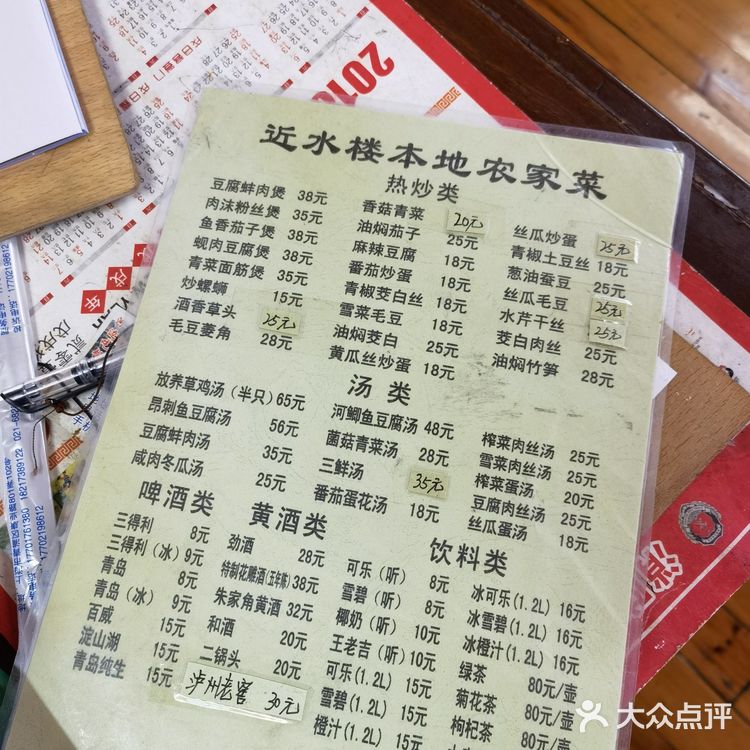 近水楼本地农家菜
热炒类
豆腐蚌肉煲 38元
肉沫粉丝煲 35元
鱼香茄子煲 38元
蚬肉豆腐煲 38元
青菜面筋煲 35元
炒螺蛳 15元
酒香草头 25元
毛豆菱角 28元
香菇青菜 20元
油焖茄子 25元
麻辣豆腐 18元
番茄炒蛋 18元
青椒茭白丝 18元
雪菜毛豆 18元
油焖茭白 25元
黄瓜丝炒蛋 18元
丝瓜炒蛋 25元
青椒土豆丝 18元
葱油蚕豆 25元
丝瓜毛豆 25元
水芹干丝 25元
茭白肉丝 25元
油焖竹笋 28元
汤类
放养草鸡汤（半只）65元
昂刺鱼豆腐汤 56元
豆腐蚌肉汤 35元
咸肉冬瓜汤 25元
河鲫鱼豆腐汤 48元
菌菇青菜汤 28元
三鲜汤 35元
番茄蛋花汤 18元
榨菜肉丝汤 25元
雪菜肉丝汤 25元
榨菜蛋汤 20元
豆腐肉丝汤 25元
丝瓜蛋汤 18元
啤酒类
三得利 8元
三得利（冰）9元
青岛 8元
青岛（冰）9元
百威 15元
淀山湖 15元
青岛纯生 15元
黄酒类
劲酒 28元
特制花雕酒(五年陈) 38元
朱家角黄酒 32元
和酒 20元
二锅头 20元
泸州老窖 30元
饮料类
可乐（听） 8元
雪碧（听） 8元
椰奶（听） 10元
王老吉（听）10元
可乐(1.2L) 15元
雪碧(1.2L) 15元
橙汁(1.2L) 15元
冰可乐(1.2L) 16元
冰雪碧(1.2L) 16元
冰橙汁(1.2L) 16元
绿茶 80元/壶
菊花茶 80元/壶
枸杞茶 80元/壶
大众点评